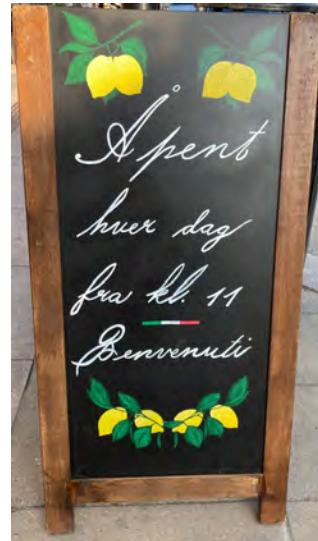 Åpent
hver dag
fra kl. 11
Benvenuti